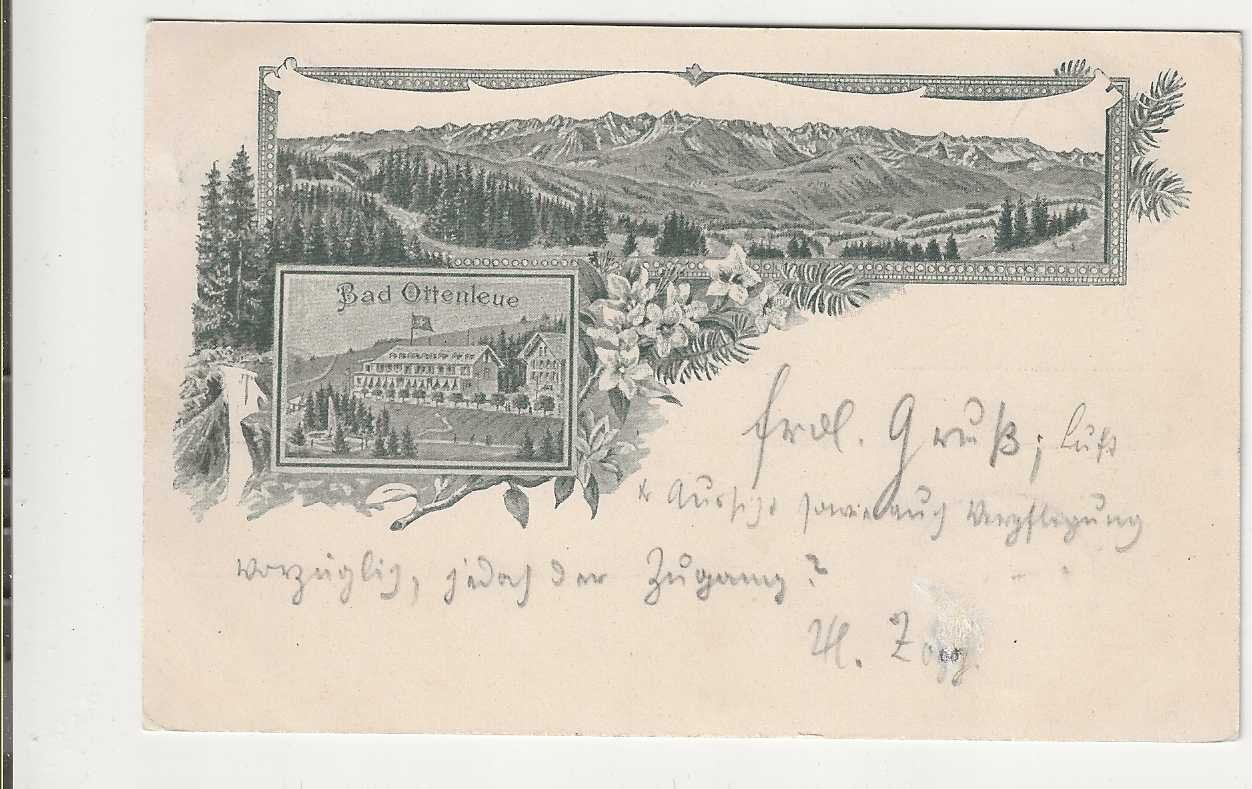 Bad Ottenleue
frdl. Gruß; Luft
& Aussicht sowie auch Verpflegung
vorzüglich, jedoch der Zugang?
Zogg.